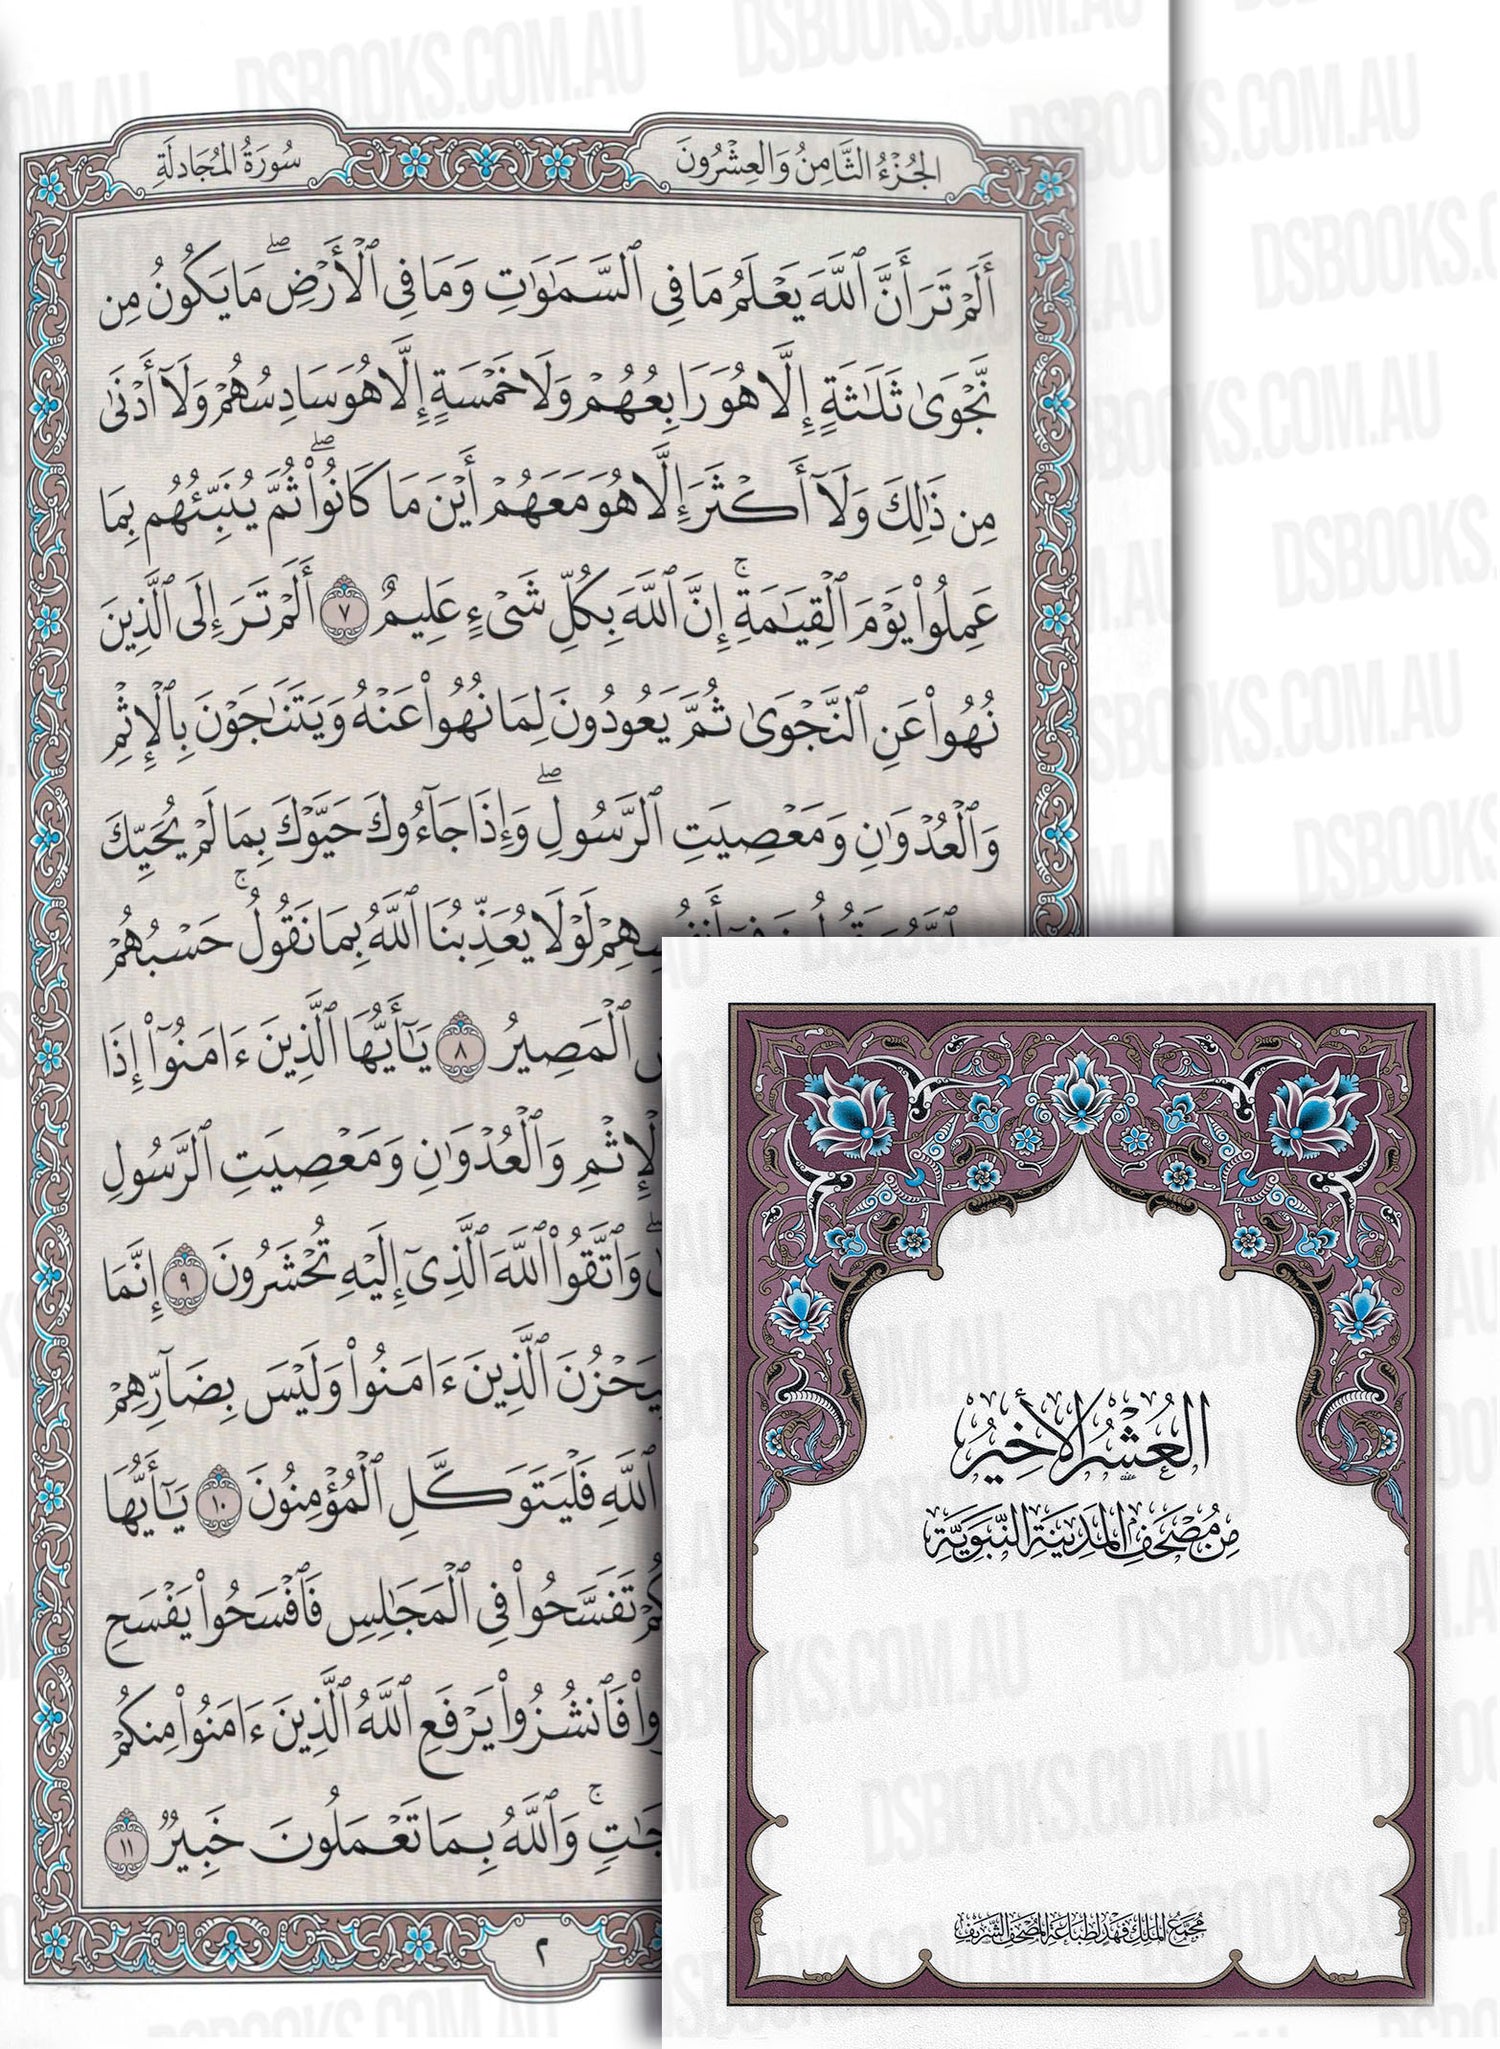 الجُزْءُ الثَّامِنُ وَالعِشْرُونَ
سُورَةُ المُجَادلَةِ
أَلَمْ تَرَ أَنَّ ٱللَّهَ يَعْلَمُ مَا فِى ٱلسَّمَٰوَٰتِ وَمَا فِى ٱلْأَرْضِ ۖ مَا يَكُونُ مِن
نَّجْوَىٰ ثَلَٰثَةٍ إِلَّا هُوَ رَابِعُهُمْ وَلَا خَمْسَةٍ إِلَّا هُوَ سَادِسُهُمْ وَلَآ أَدْنَىٰ
مِن ذَٰلِكَ وَلَآ أَكْثَرَ إِلَّا هُوَ مَعَهُمْ أَيْنَ مَا كَانُوا۟ ۖ ثُمَّ يُنَبِّئُهُم بِمَا
عَمِلُوا۟ يَوْمَ ٱلْقِيَٰمَةِ ۚ إِنَّ ٱللَّهَ بِكُلِّ شَىْءٍ عَلِيمٌ ٧ أَلَمْ تَرَ إِلَى ٱلَّذِينَ
نُهُوا۟ عَنِ ٱلنَّجْوَىٰ ثُمَّ يَعُودُونَ لِمَا نُهُوا۟ عَنْهُ وَيَتَنَٰجَوْنَ بِٱلْإِثْمِ
وَٱلْعُدْوَٰنِ وَمَعْصِيَتِ ٱلرَّسُولِ ۖ وَإِذَا جَآءُوكَ حَيَّوْكَ بِمَا لَمْ يُحَيِّكَ
لَوْلَا يُعَذِّبُنَا ٱللَّهُ بِمَا نَقُولُ ۚ حَسْبُهُمْ
ٱلْمَصِيرُ ٨ يَٰٓأَيُّهَا ٱلَّذِينَ ءَامَنُوٓا۟ إِذَا
وَٱلْعُدْوَٰنِ وَمَعْصِيَتِ ٱلرَّسُولِ
وَٱتَّقُوا۟ ٱللَّهَ ٱلَّذِىٓ إِلَيْهِ تُحْشَرُونَ ٩ إِنَّمَا
ٱلَّذِينَ ءَامَنُوا۟ وَلَيْسَ بِضَآرِّهِمْ
ٱللَّهِ فَلْيَتَوَكَّلِ ٱلْمُؤْمِنُونَ ١٠ يَٰٓأَيُّهَا
تَفَسَّحُوا۟ فِى ٱلْمَجَٰلِسِ فَٱفْسَحُوا۟ يَفْسَحِ
فَٱنشُزُوا۟ يَرْفَعِ ٱللَّهُ ٱلَّذِينَ ءَامَنُوا۟ مِنكُمْ
وَٱللَّهُ بِمَا تَعْمَلُونَ خَبِيرٌ ١١
٢
العُشْرُ الأَخِيرُ
مِن مُصْحَفِ المَدِينَةِ النَّبَوِيَّةِ
مُجَمَّعُ المَلِك فَهْد لِطِبَاعَةِ المُصْحَفِ الشَّرِيفِ
DSBOOKS.COM.AU